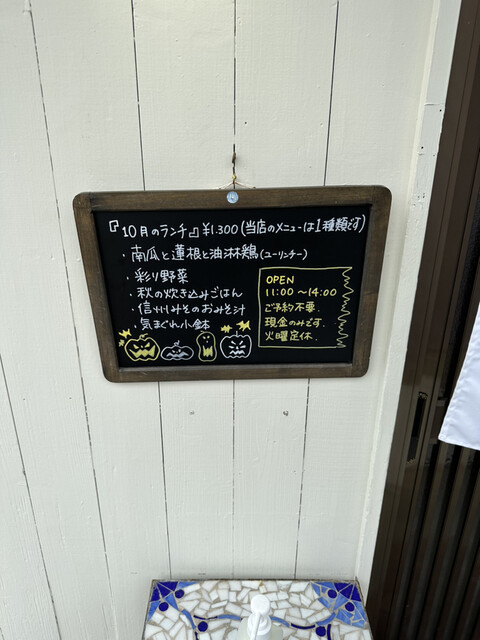 『10月のランチ』¥1.300(当店のメニューは1種類です)
・南瓜と蓮根と油淋鶏(ユーリンチー)
・彩り野菜
・秋の炊き込みごはん
・信州みそのおみそ汁
・気まぐれ小鉢
OPEN
11:00～14:00
ご予約不要.
現金のみです.
火曜定休.